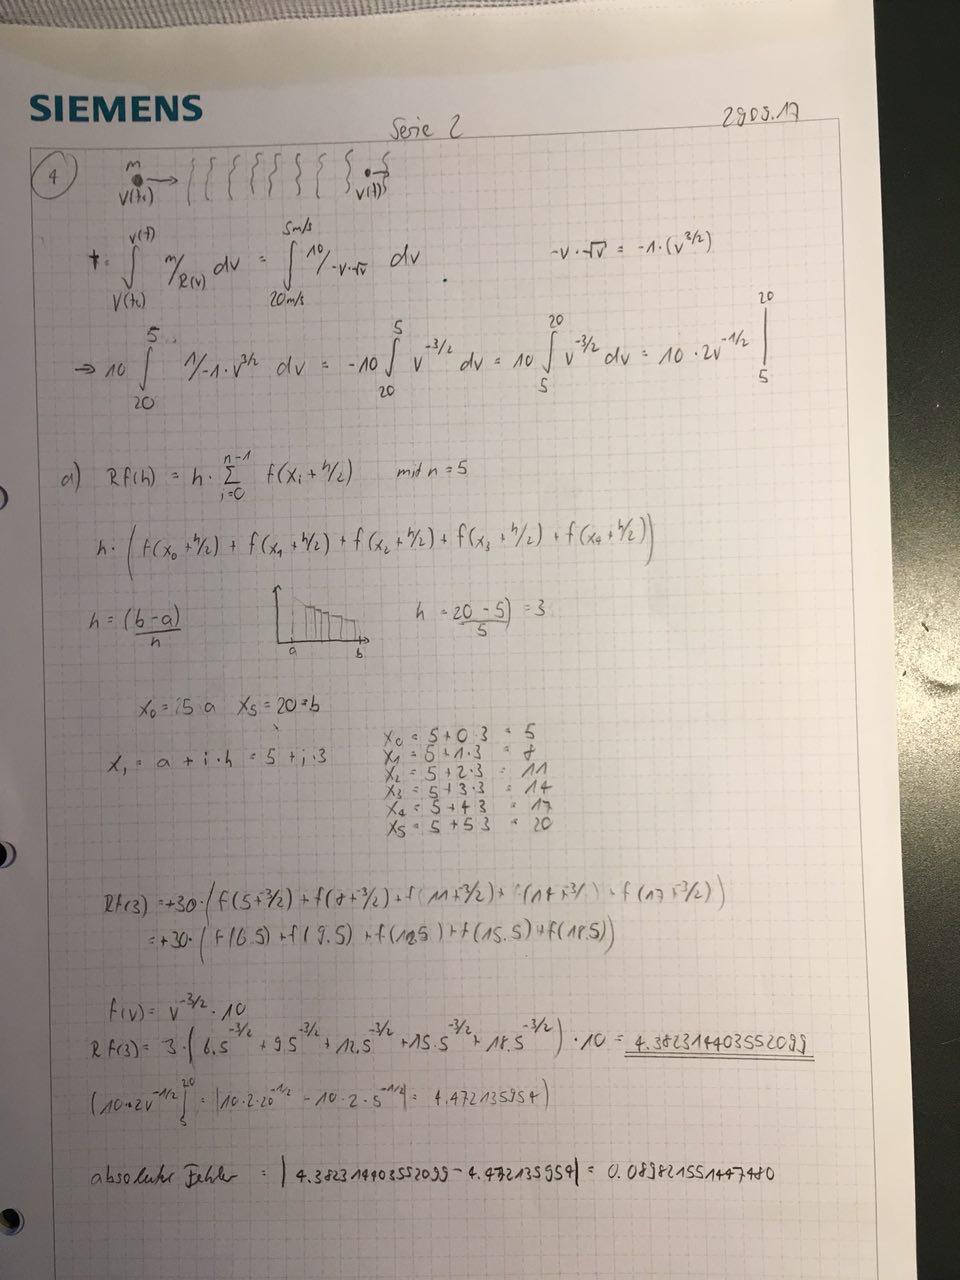 SIEMENS
Serie 2
29.09.17
4
m
v(t₀) v(t)
t = ∫_{v(t₀)}^{v(t)} m/R(v) dv = ∫_{20m/s}^{5m/s} 10/-v·√v dv -v·√v = -1·(v^{3/2})
→ 10 ∫_{20}^{5} 1/-1·v^{3/2} dv = -10 ∫_{20}^{5} v^{-3/2} dv = 10 ∫_{5}^{20} v^{-3/2} dv = 10·2v^{-1/2} |_{5}^{20}
a) Rf(h) = h·Σ_{i=0}^{n-1} f(x_i + h/2) mit n = 5
h·(f(x₀+h/2) + f(x₁+h/2) + f(x₂+h/2) + f(x₃+h/2) + f(x₄+h/2))
h = (b-a)/n h = (20-5)/5 = 3
a b
x₀ = 5 a x₅ = 20 = b
x_i = a + i·h = 5 + i·3
x₀ = 5+0·3 = 5
x₁ = 5+1·3 = 8
x₂ = 5+2·3 = 11
x₃ = 5+3·3 = 14
x₄ = 5+4·3 = 17
x₅ = 5+5·3 = 20
Rf(3) = +30·(f(5+3/2) + f(8+3/2) + f(11+3/2) + f(14+3/2) + f(17+3/2))
= +30·(f(6.5) + f(9.5) + f(12.5) + f(15.5) + f(18.5))
f(v) = v^{-3/2}·10
Rf(3) = 3·(6.5^{-3/2} + 9.5^{-3/2} + 12.5^{-3/2} + 15.5^{-3/2} + 18.5^{-3/2})·10 = 4.382314403552099
(10·2v^{-1/2} ]_{5}^{20} = |10·2·20^{-1/2} - 10·2·5^{-1/2}| = 4.472135954)
absoluter Fehler = |4.382314403552099 - 4.472135954| = 0.089821551447480